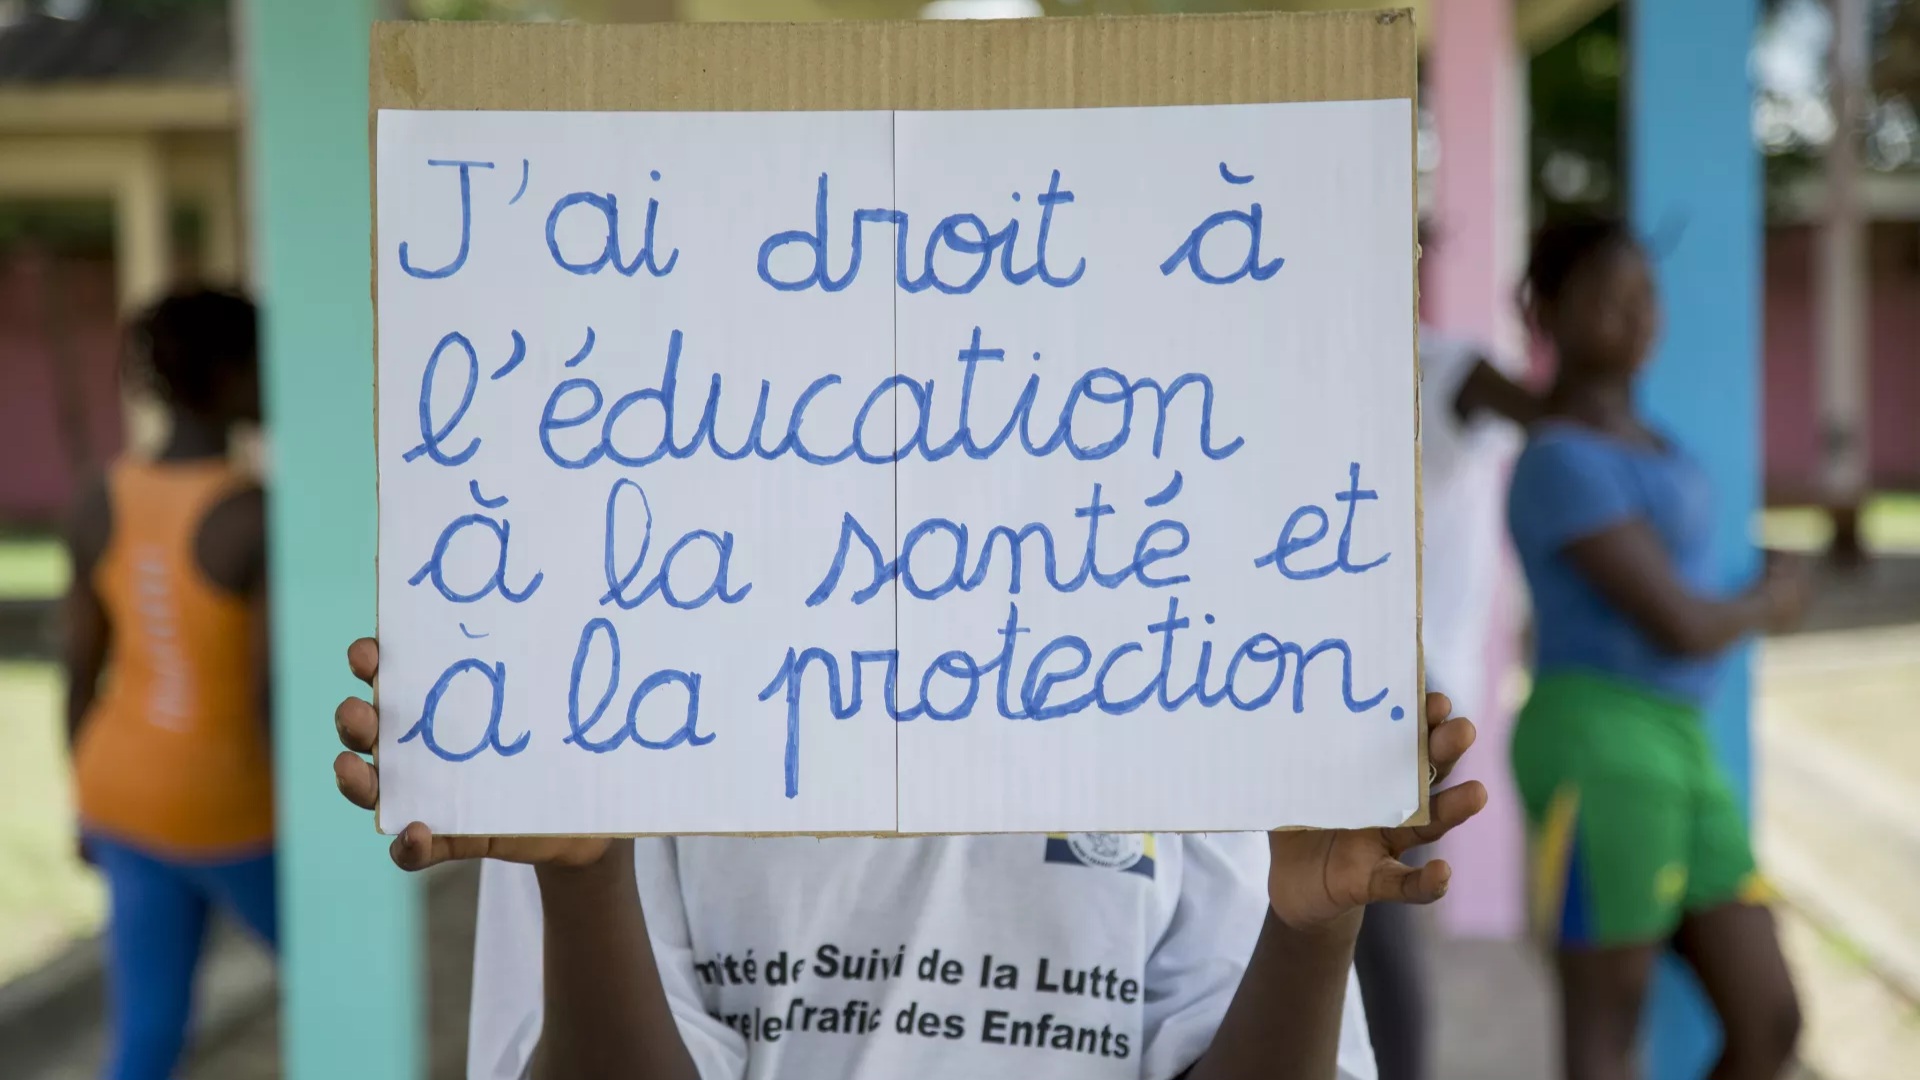 J'ai droit à
l'éducation
à la santé et
à la protection.
de Suivi de la Lutte
Trafic des Enfants